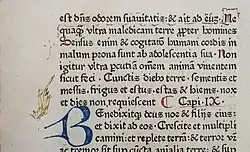 est dñs odorem suauitatis: & ait ad eũ: Ne
quaq̃ vltra maledicam terre ꝓpter homines
Sensus enim & cogitatio humani cordis in
malum prona sunt ab adolescentia sua. Non
igitur vltra ꝑcutiã omnem animã viuentem
sicut feci. Cunctis diebꝰ terre: sementis et
messis: frigus et estus: estas & hiems: nox
et dies non requiescent. Capi. IX.
Benedixitq̃ deus noe & filijs eius:
et dixit ad eos. Crescite et multipli
camini: et replete terrã: & terror vr̃
ac tremor sit sup cũcta animalia terre: & sup